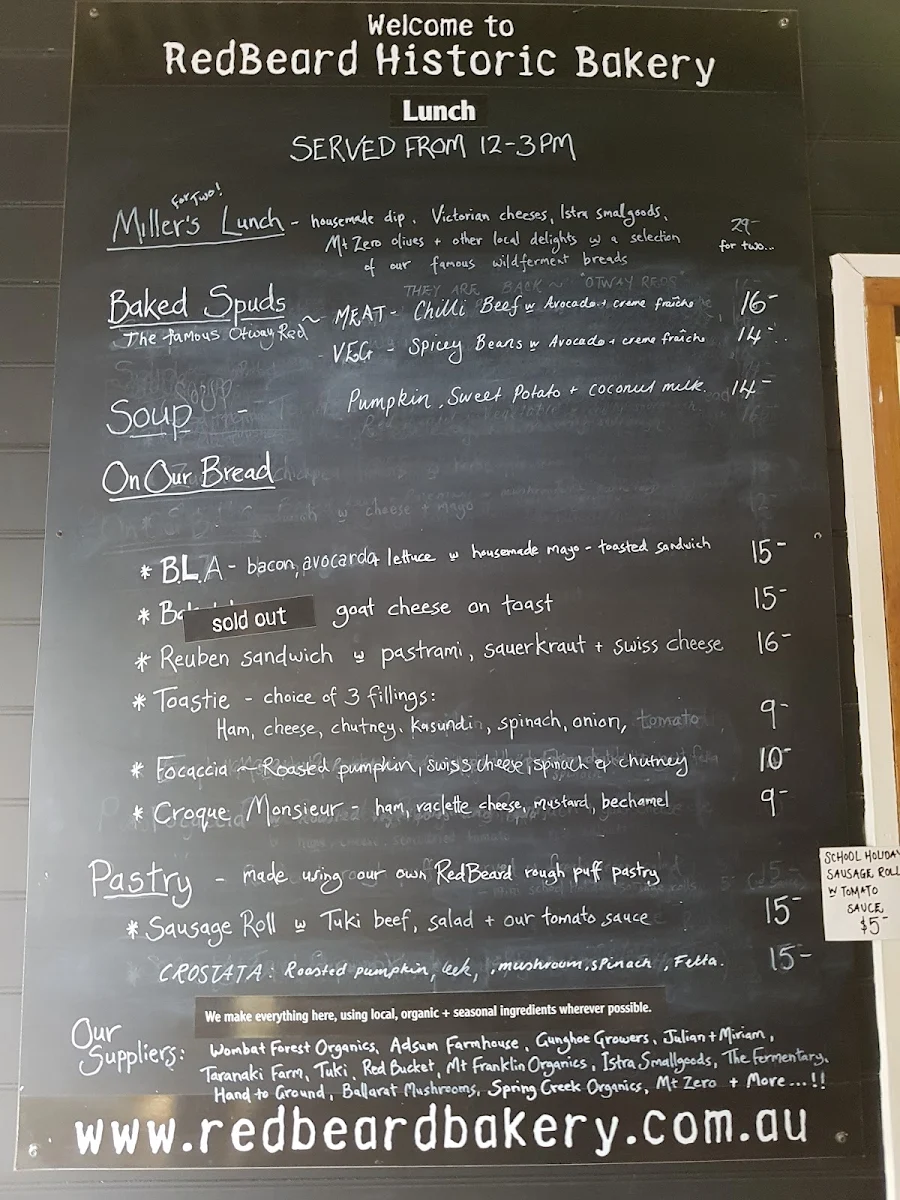 Welcome to
RedBeard Historic Bakery
Lunch
SERVED FROM 12-3PM
For Two!
Miller's Lunch - housemade dip, Victorian cheeses, Istra smalgoods, 29-
Mt Zero olives + other local delights w a selection for two...
of our famous wildferment breads
THEY ARE BACK ~ "OTWAY REDS"
Baked Spuds ~ MEAT - Chilli Beef w Avocado + creme fraîche 16-
The famous Otway Red
- VEG - Spicey Beans w Avocado + creme fraîche 14-
Soup - Pumpkin, Sweet Potato + coconut milk. 14-
On Our Bread
w cheese + mayo
* B.L.A - bacon, avocarda lettuce w housemade mayo - toasted sandwich 15-
* sold out goat cheese on toast 15-
* Reuben sandwich w pastrami, sauerkraut + swiss cheese 16-
* Toastie - choice of 3 fillings: 9-
Ham, cheese, chutney, kasundin, spinach, onion, tomato
* Focaccia ~ Roasted pumpkin, swiss cheese, spinach & chutney 10-
* Croque Monsieur - ham, raclette cheese, mustard, bechamel 9-
Pastry - made using our own RedBeard rough puff pastry
* Sausage Roll w Tuki beef, salad + our tomato sauce 15-
CROSTATA: Roasted pumpkin, leek, , mushroom, spinach, Fetta. 15-
SCHOOL HOLIDAY
SAUSAGE ROLL
w TOMATO
SAUCE
$5-
We make everything here, using local, organic + seasonal ingredients wherever possible.
Our Suppliers: Wombat Forest Organics, Adsum Farmhouse, Gunghoe Growers, Julian + Miriam,
Taranaki Farm, Tuki, Red Bucket, Mt Franklin Organics, Istra Smallgoods, The Fermentary,
Hand to Ground, Ballarat Mushrooms, Spring Creek Organics, Mt Zero + More...!!
www.redbeardbakery.com.au